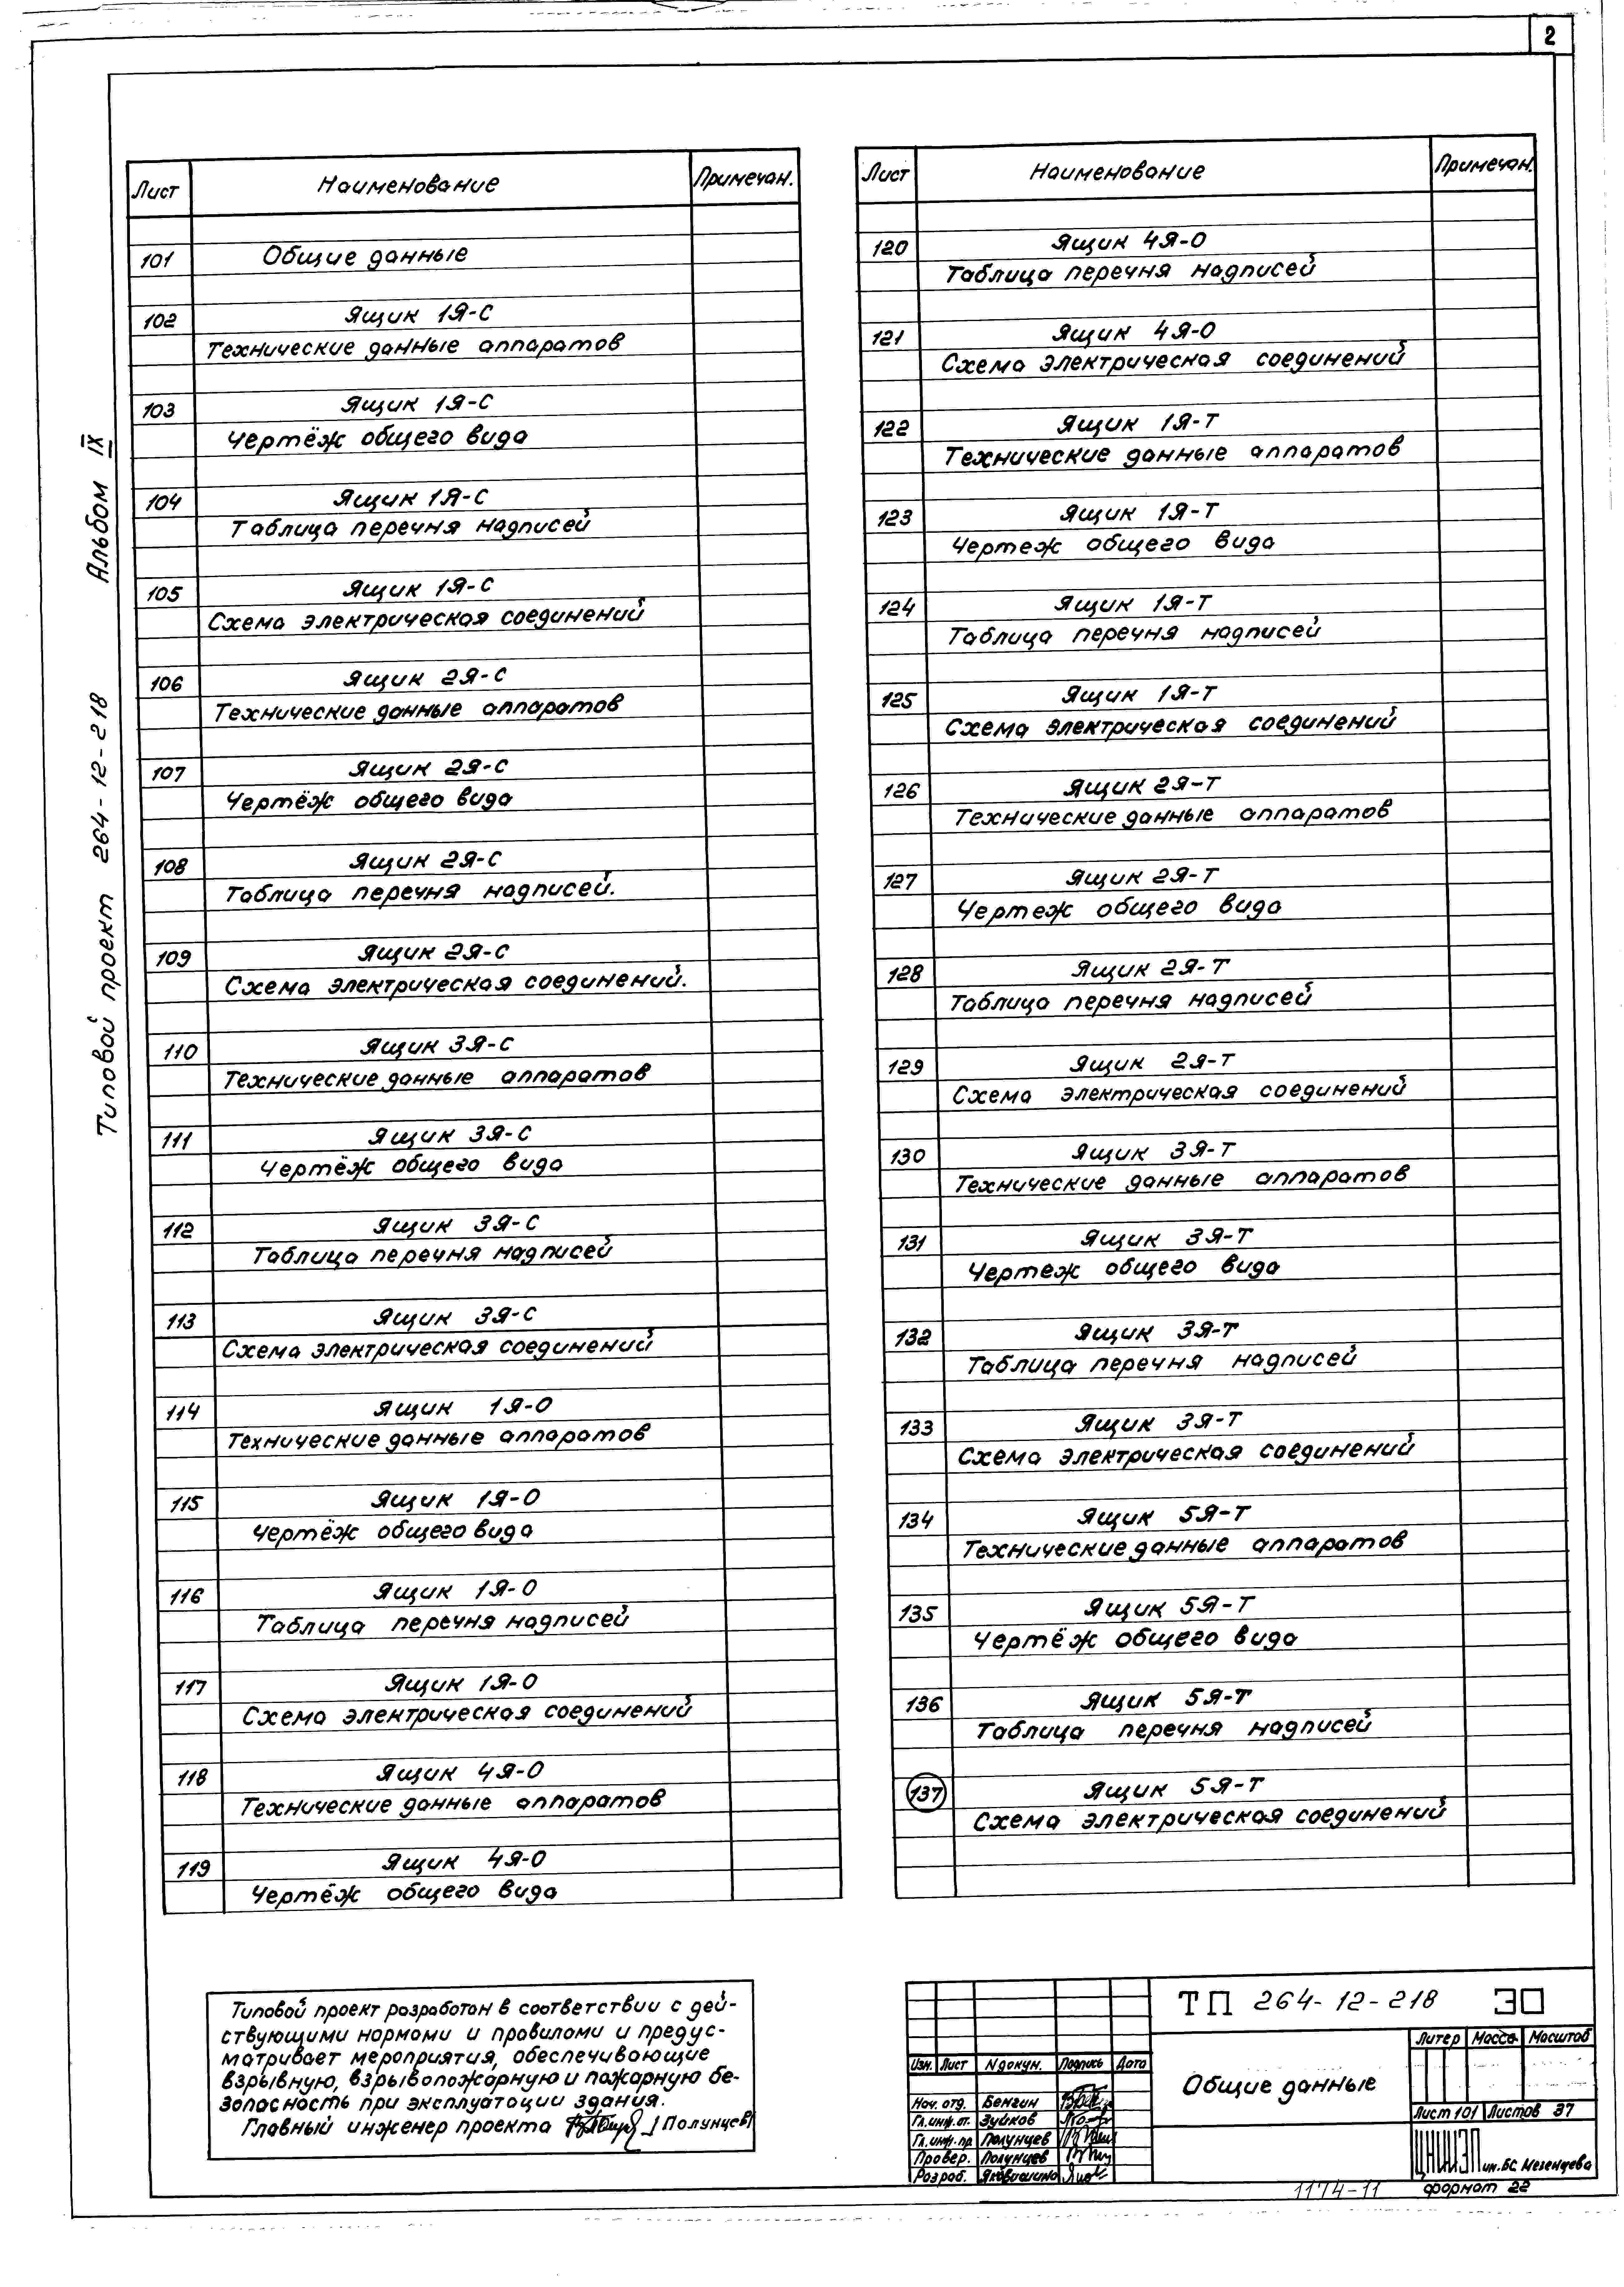 2
Альбом IX
Типовой проект 264-12-218
Лист Наименование Примечан.
101 Общие данные
102 Ящик 1Я-С
Технические данные аппаратов
103 Ящик 1Я-С
Чертёж общего вида
104 Ящик 1Я-С
Таблица перечня надписей
105 Ящик 1Я-С
Схема электрическая соединений
106 Ящик 2Я-С
Технические данные аппаратов
107 Ящик 2Я-С
Чертёж общего вида
108 Ящик 2Я-С
Таблица перечня надписей.
109 Ящик 2Я-С
Схема электрическая соединений.
110 Ящик 3Я-С
Технические данные аппаратов
111 Ящик 3Я-С
Чертёж общего вида
112 Ящик 3Я-С
Таблица перечня надписей
113 Ящик 3Я-С
Схема электрическая соединений
114 Ящик 1Я-О
Технические данные аппаратов
115 Ящик 1Я-О
Чертёж общего вида
116 Ящик 1Я-О
Таблица перечня надписей
117 Ящик 1Я-О
Схема электрическая соединений
118 Ящик 4Я-О
Технические данные аппаратов
119 Ящик 4Я-О
Чертёж общего вида
Лист Наименование Примечан.
120 Ящик 4Я-О
Таблица перечня надписей
121 Ящик 4Я-О
Схема электрическая соединений
122 Ящик 1Я-Т
Технические данные аппаратов
123 Ящик 1Я-Т
Чертеж общего вида
124 Ящик 1Я-Т
Таблица перечня надписей
125 Ящик 1Я-Т
Схема электрическая соединений
126 Ящик 2Я-Т
Технические данные аппаратов
127 Ящик 2Я-Т
Чертеж общего вида
128 Ящик 2Я-Т
Таблица перечня надписей
129 Ящик 2Я-Т
Схема электрическая соединений
130 Ящик 3Я-Т
Технические данные аппаратов
131 Ящик 3Я-Т
Чертеж общего вида
132 Ящик 3Я-Т
Таблица перечня надписей
133 Ящик 3Я-Т
Схема электрическая соединений
134 Ящик 5Я-Т
Технические данные аппаратов
135 Ящик 5Я-Т
Чертёж общего вида
136 Ящик 5Я-Т
Таблица перечня надписей
137 Ящик 5Я-Т
Схема электрическая соединений
Типовой проект разработан в соответствии с дей-
ствующими нормами и правилами и предус-
матривает мероприятия, обеспечивающие
взрывную, взрывопожарную и пожарную бе-
зопасность при эксплуатации здания.
Главный инженер проекта /Полунцев/
ТП 264-12-218 ЭО
Изм. Лист N докум. Подпись Дата
Нач. отд. Бенгин
Гл. инж. от. Зуйков
Гл. инж. пр. Полунцев
Провер. Полунцев
Разраб.
Общие данные
Литер Масса Масштаб
Лист 101 Листов 37
ЦНИИЭП им. Б.С. Мезенцева
1174-11 формат 22